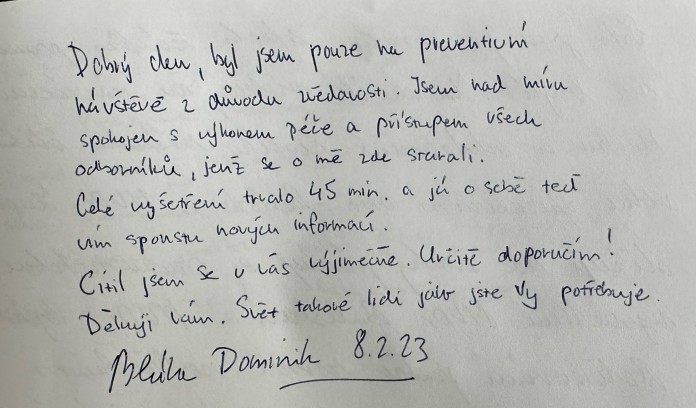 Dobrý den, byl jsem pouze na preventivní
návštěvě z důvodu zvědavosti. Jsem nad míru
spokojen s výkonem péče a přístupem všech
odborníků, jenž se o mě zde starali.
Celé vyšetření trvalo 45 min. a já o sobě teď
vím spoustu nových informací.
Cítil jsem se u vás výjimečně. Určitě doporučím!
Děkuji vám. Svět takové lidi jako jste Vy potřebuje.
Dominik 8.2.23